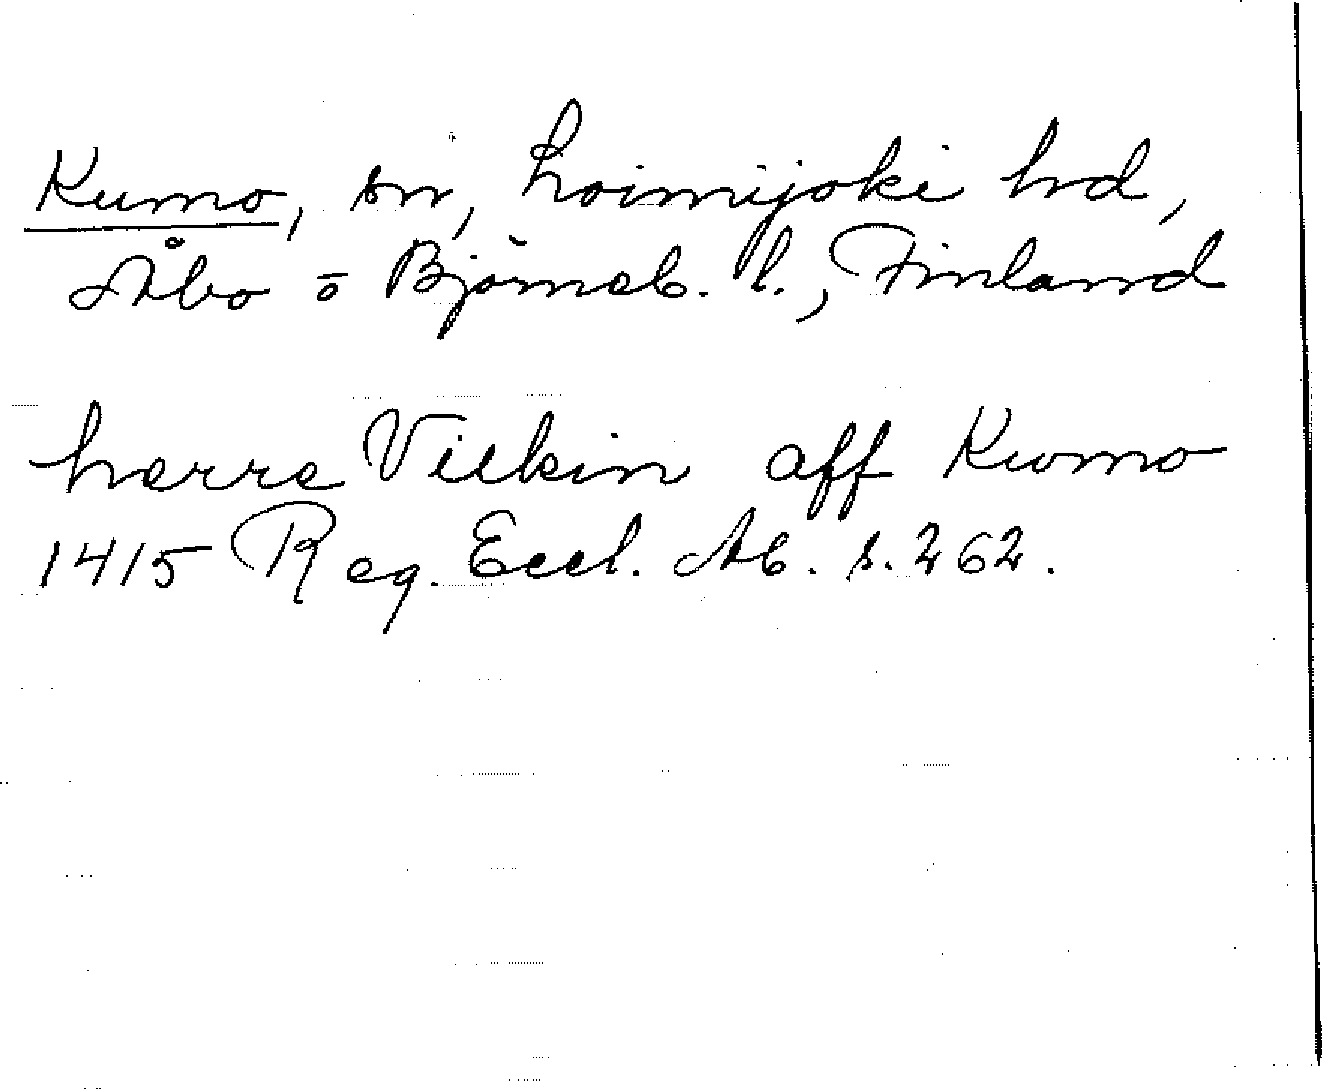 Kumo, sn, Loimijoki hd,
Åbo o Björneb. l., Finland
herre Vilkin aff Kwmo
1415 Reg. Eccl. Ab. s. 262.